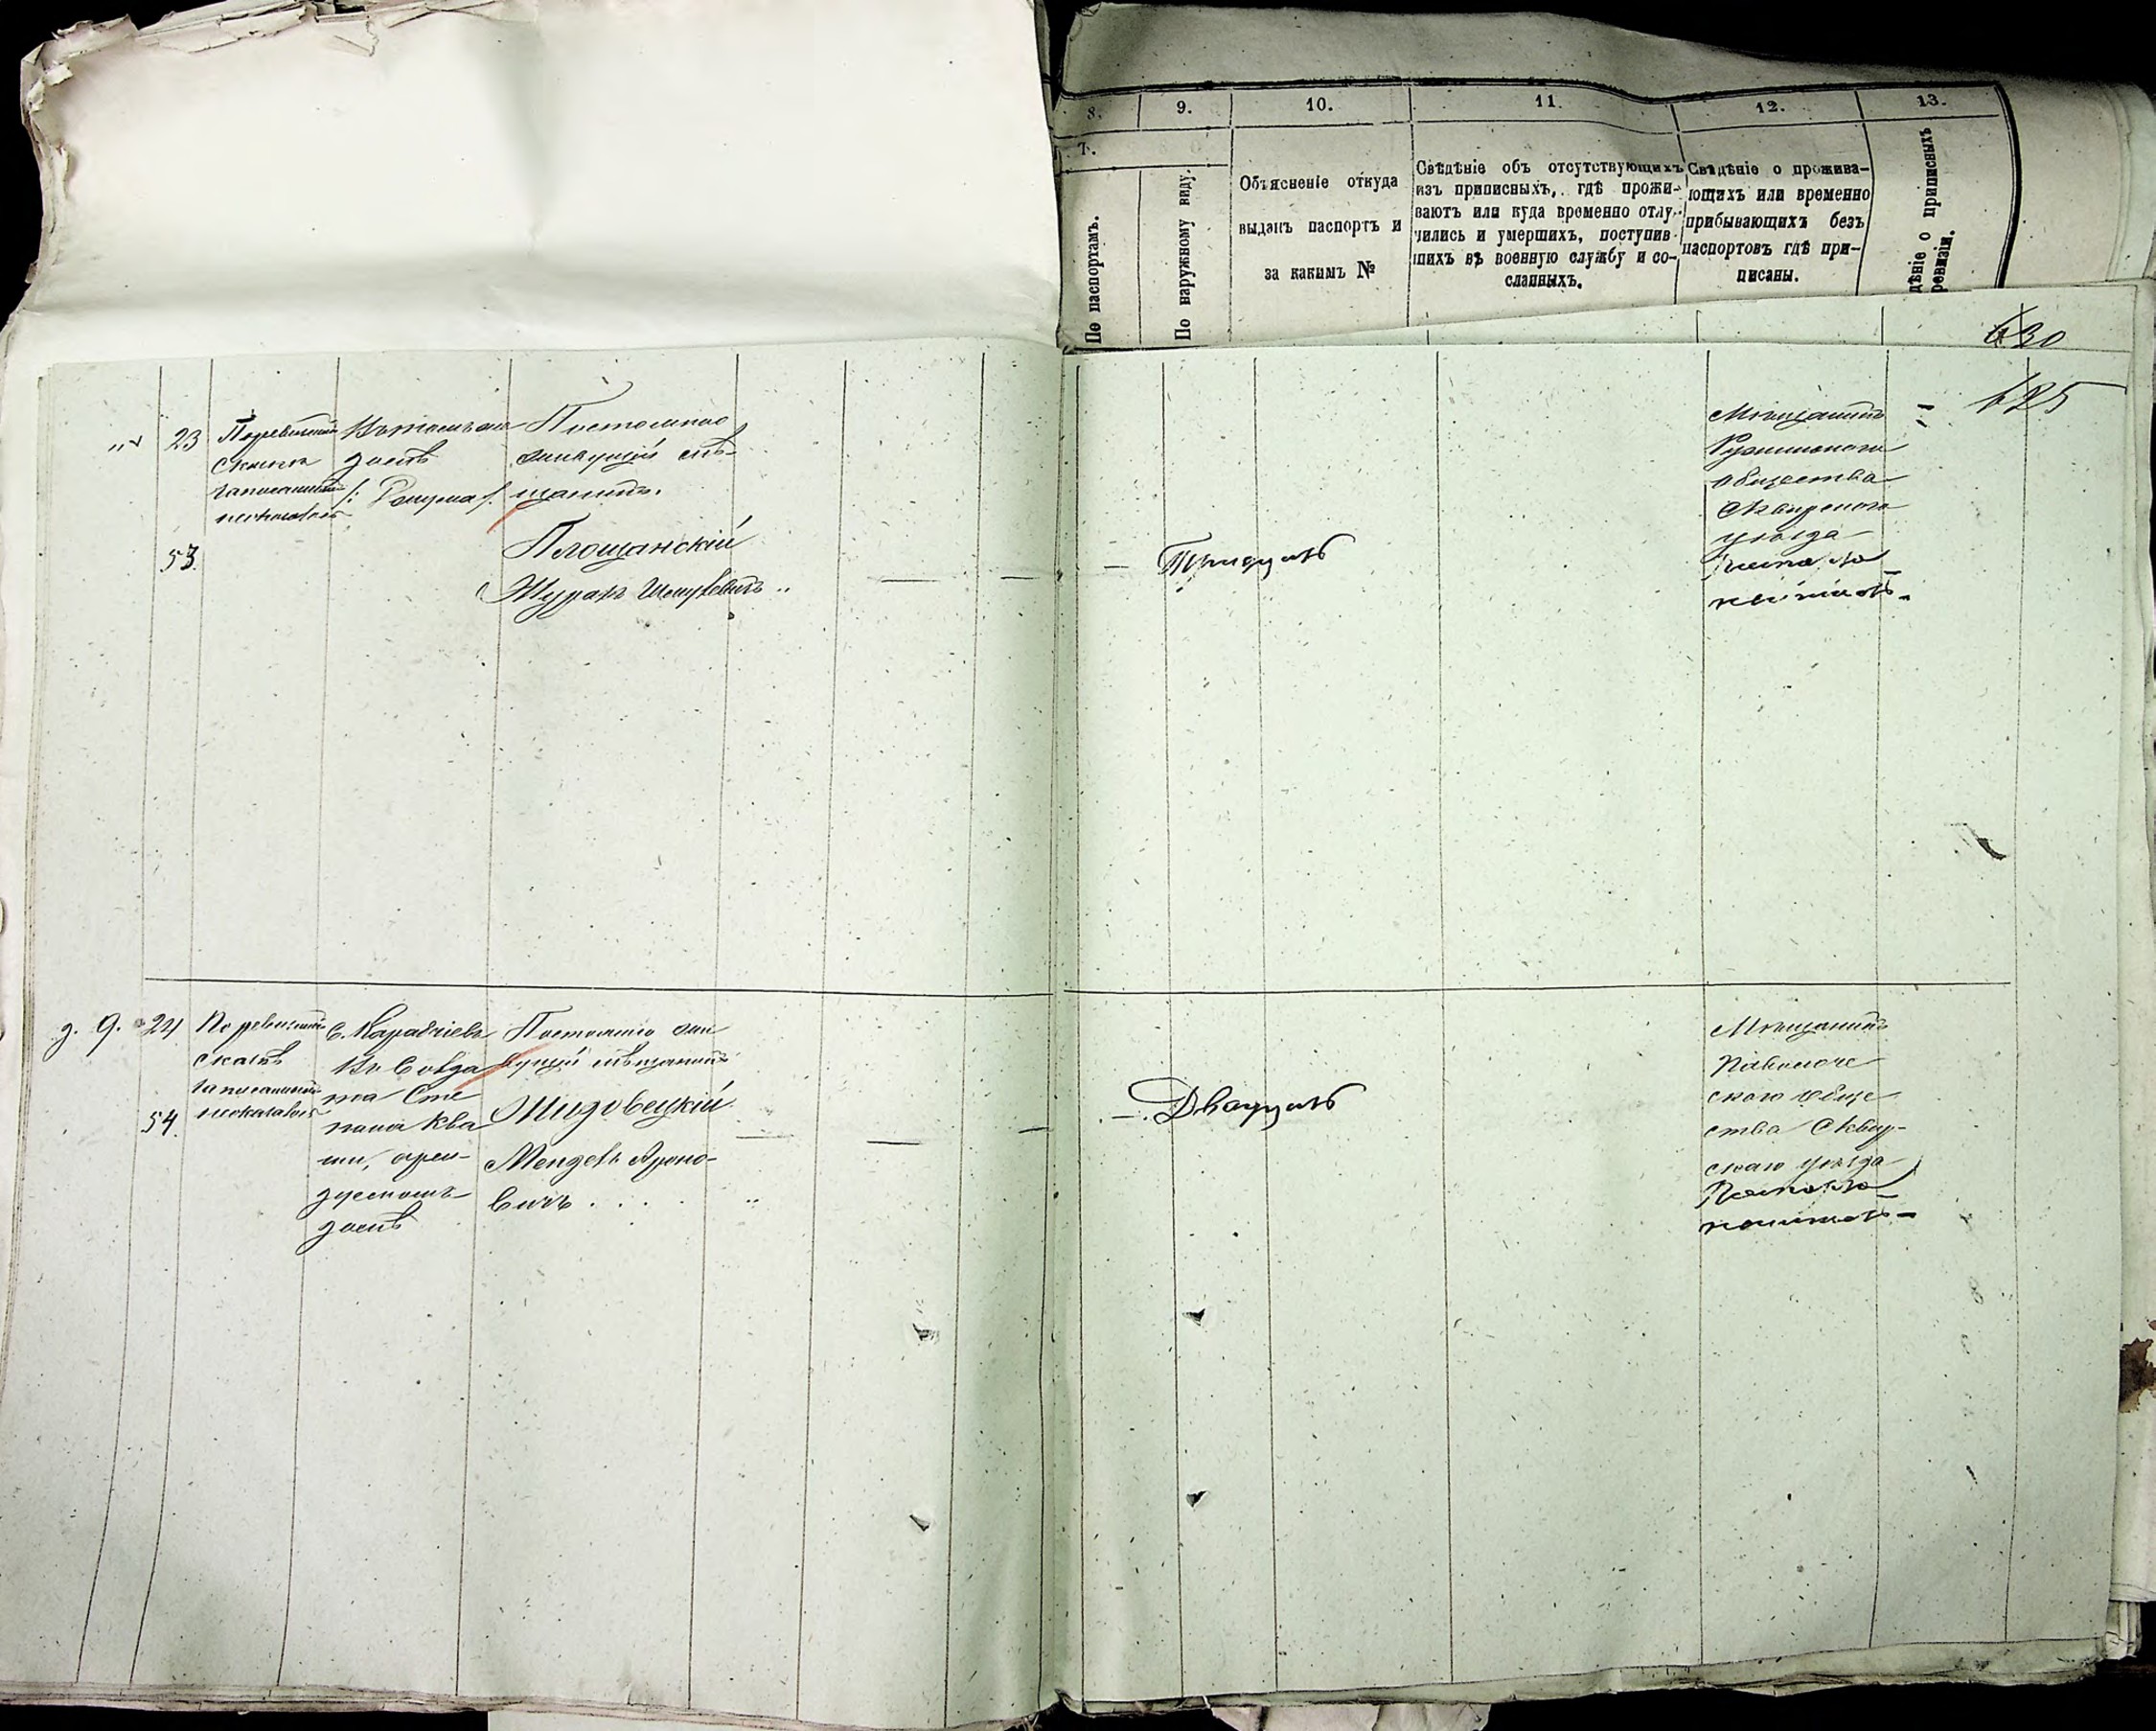 8. 9. 10. 11. 12. 13.
По паспортамъ.
По наружному виду.
Объясненіе откуда
выданъ паспортъ и
за какимъ №
Свѣдѣніе объ отсутствующихъ
изъ приписныхъ, гдѣ прожи-
ваютъ или куда временно отлу-
чились и умершихъ, поступив-
шихъ въ военную службу и со-
сланныхъ.
Свѣдѣніе о прожива-
ющихъ или временно
прибывающихъ безъ
паспортовъ гдѣ при-
писаны.
дѣніе о приписныхъ
ревизіи.
630
625
23
По ревизской
скаски
записанный
непоказанъ
53.
Въ томъ же
домѣ
Постоянно
живущій мѣ-
щанинъ.
Площанскій
Шмулевичъ
Тридцать
Мѣщанинъ
Ружинскаго
общества
Сквирскаго
уѣзда
д. 9. 24
По ревизской
сказкѣ
записанный
непоказанъ
54.
С. Карабчіевъ
Въ Солда
та Сте
пана Ква
ши, арен-
домѣ
Постоянно жи
вущій мѣщанинъ
Мендель Ароно-
вичъ
Двадцать
Мѣщанинъ
Паволоче
скаго обще
ства Сквир-
скаго уѣзда